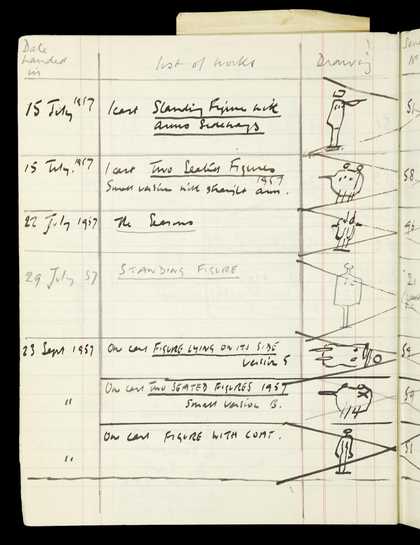 Date
handed
in
List of works
Drawing
15 July 1957
1 cast Standing Figure with
arms Sideways
15 July. 1957
1 cast Two Seated Figures
1957
Small version with straight arm.
22 July 1957
The Seasons
29 July 57
STANDING FIGURE
23 Sept 1957
One cast FIGURE LYING ON ITS SIDE
version 5
"
One cast TWO SEATED FIGURES 1957
Small version B.
"
One cast FIGURE WITH COAT.